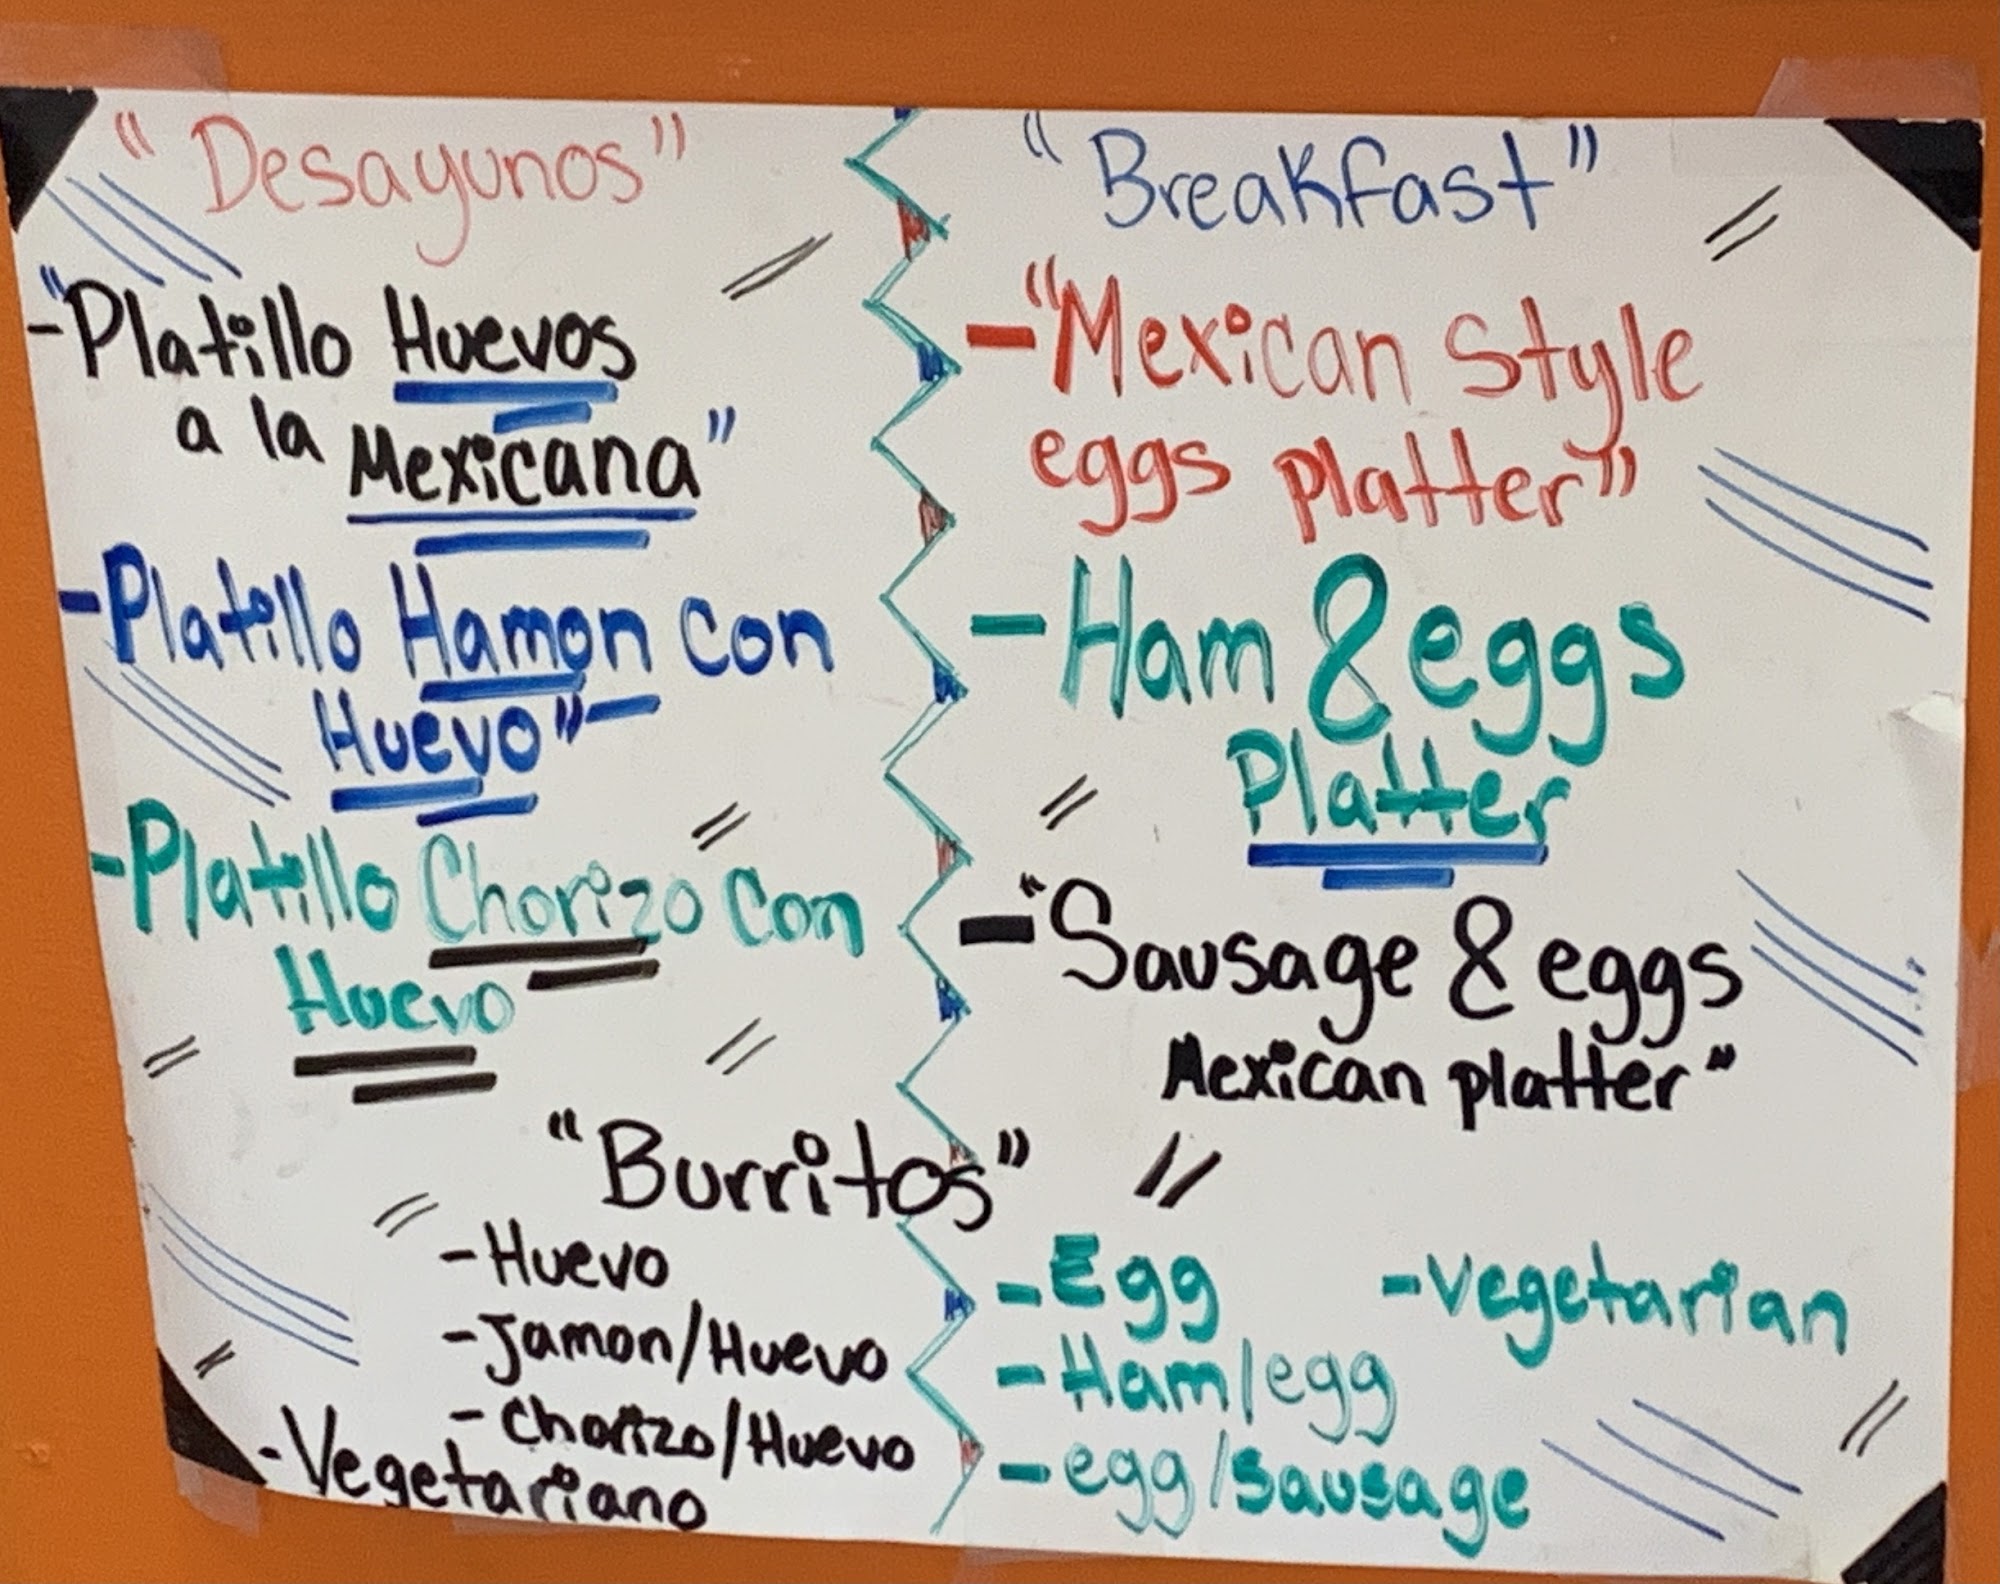 "Desayunos"
-"Platillo Huevos
a la Mexicana"
-Platillo Hamon con
Huevo"-
-Platillo Chorizo Con
Huevo
"Breakfast"
-"Mexican Style
eggs platter"
-Ham & eggs
Platter
-"Sausage & eggs
Mexican platter"
"Burritos"
-Huevo
-Jamon/Huevo
-Chorizo/Huevo
-Vegetariano
-Egg
-Vegetarian
-Ham/egg
-egg/sausage